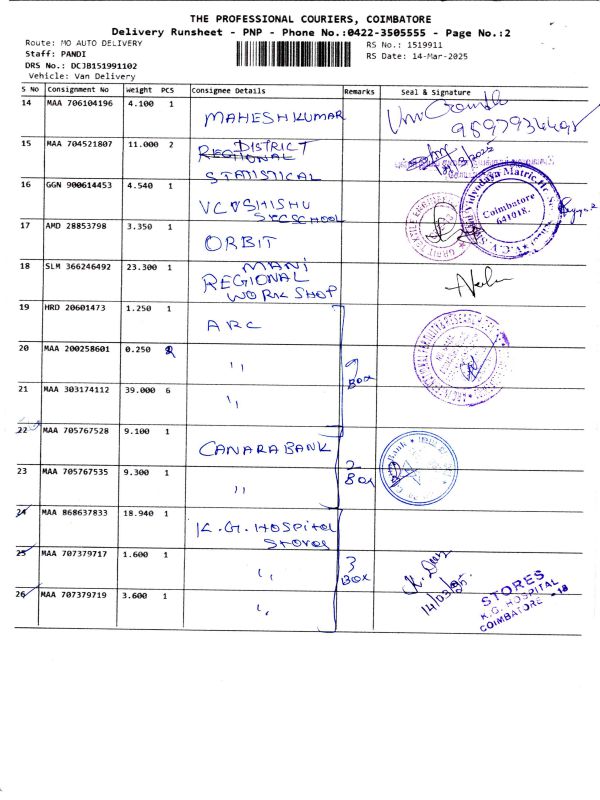 THE PROFESSIONAL COURIERS, COIMBATORE
Delivery Runsheet - PNP - Phone No.:0422-3505555 - Page No.:2
Route: MO AUTO DELIVERY
RS No.: 1519911
Staff: PANDI
RS Date: 14-Mar-2025
DRS No.: DCJB151991102
Vehicle: Van Delivery
S No Consignment No Weight PCS Consignee Details Remarks Seal & Signature
14 MAA 706104196 4.100 1 MAHESHKUMAR
15 MAA 704521807 11.000 2 DISTRICT
REGIONAL
STATISTICAL
16 GGN 900614453 4.540 1 VCVSHISHU
SECSCHOOL
Vidyodaya Matric.Hr.
Coimbatore
641018.
17 AMD 28853798 3.350 1 ORBIT
18 SLM 366246492 23.300 1 MANI
REGIONAL
WORK SHOP
19 HRD 20601473 1.250 1 ARC
20 MAA 200258601 0.250
21 MAA 303174112 39.000 6
Box
22 MAA 705767528 9.100 1 CANARA BANK
23 MAA 705767535 9.300 1 " 2
Box
24 MAA 868637833 18.940 1 K.G. HOSPITAL
STORES
25 MAA 707379717 1.600 1 " 3
Box
26 MAA 707379719 3.600 1 "
14/03/25
STORES
K.G. HOSPITAL
COIMBATORE - 18